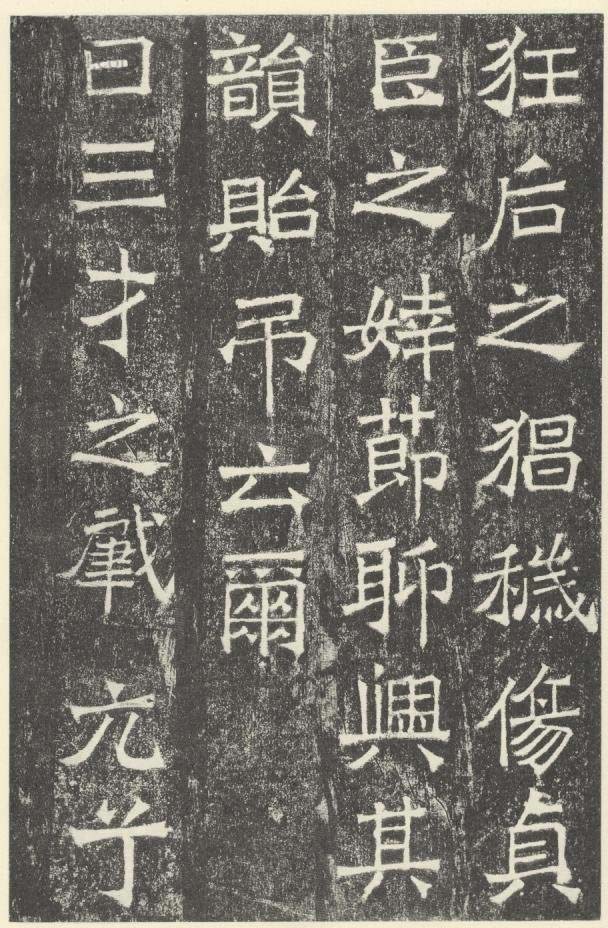 狂后之猖穢傷貞
臣之婞莭聊興其
韻貽吊云爾
曰三才之肈元兮